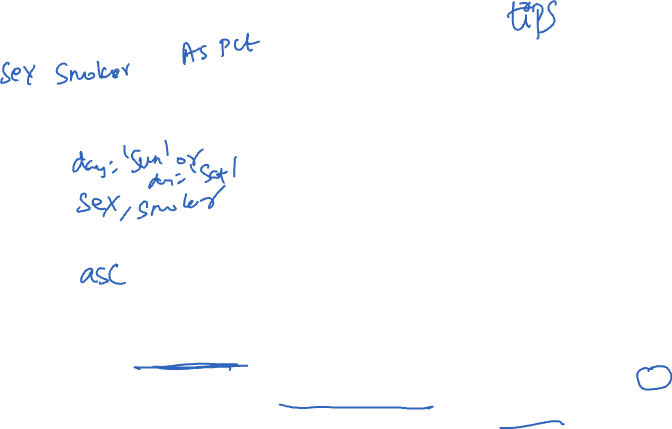 tips
sex smoker AS PCT
day = 'Sun' or
day = 'Sat'
sex, smoker
asc